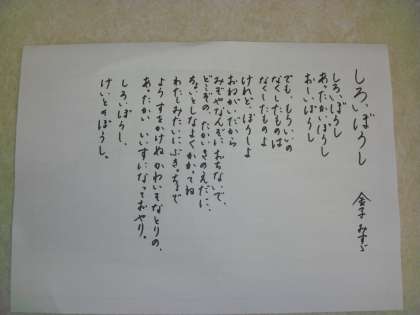 しろいぼうし　金子みすゞ
しろいぼうし
あったかいぼうし
おしいぼうし
でも、もういいの
なくしたものは
なくしたものよ
けれど、ぼうしよ
おねがいだから
みぞやなんぞに、おちないで、
どこぞの、たかいきのえだに、
ちょいとしなよくかかってね
わたしみたいに、ぶきっちょで
よう すをかけぬ かわいそなとりの、
あったかい いいすになっておやり。
しろいぼうし、
けいとのぼうし。